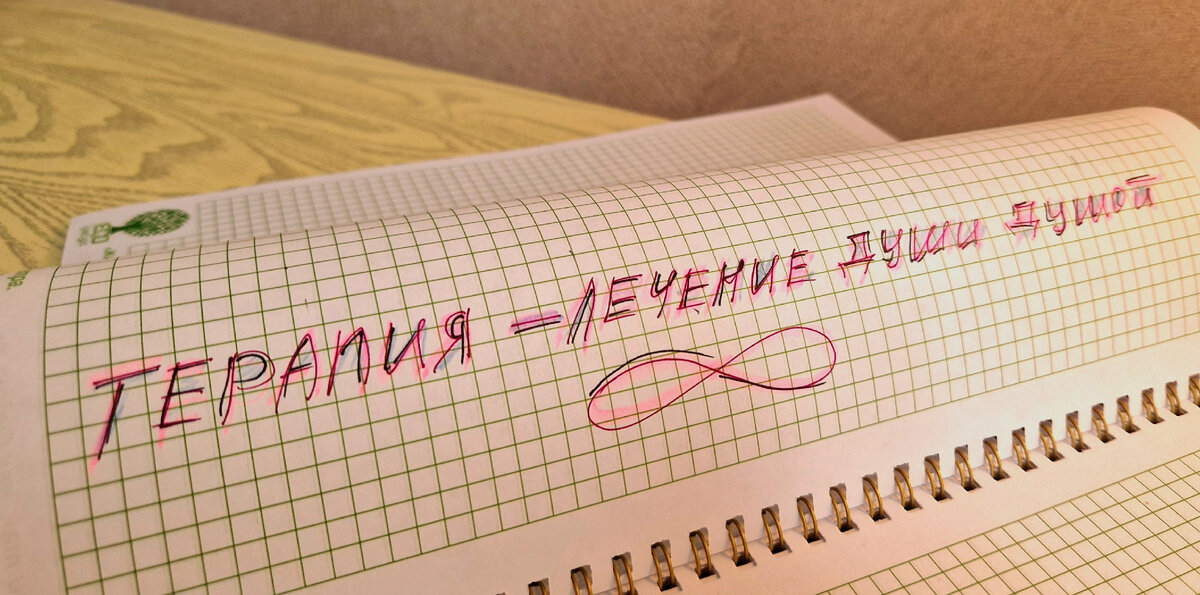 ТЕРАПИЯ = ЛЕЧЕНИЕ ДУШИ ДУШОЙ